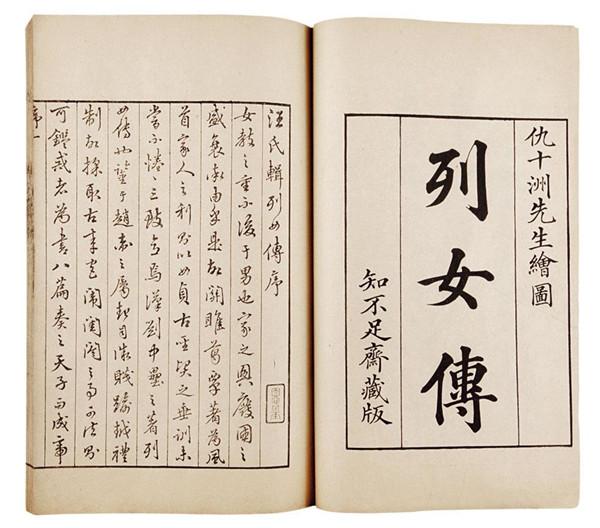 仇十洲先生繪圖
列女傳
知不足齋藏版
汪氏輯列女傳序
女教之重不後于男也家之興廢國之
盛衰由乎是故關雎葛覃著為風
首家人之利則以女貞古聖之垂訓未
嘗不惓三致焉漢劉中壘之著列
女傳也鑒于趙衛之屬起自微賤踰越禮
制故採取古來宮闈閨閫之事可法則
可鑑戒者為書八篇奏之天子而成帝
序一